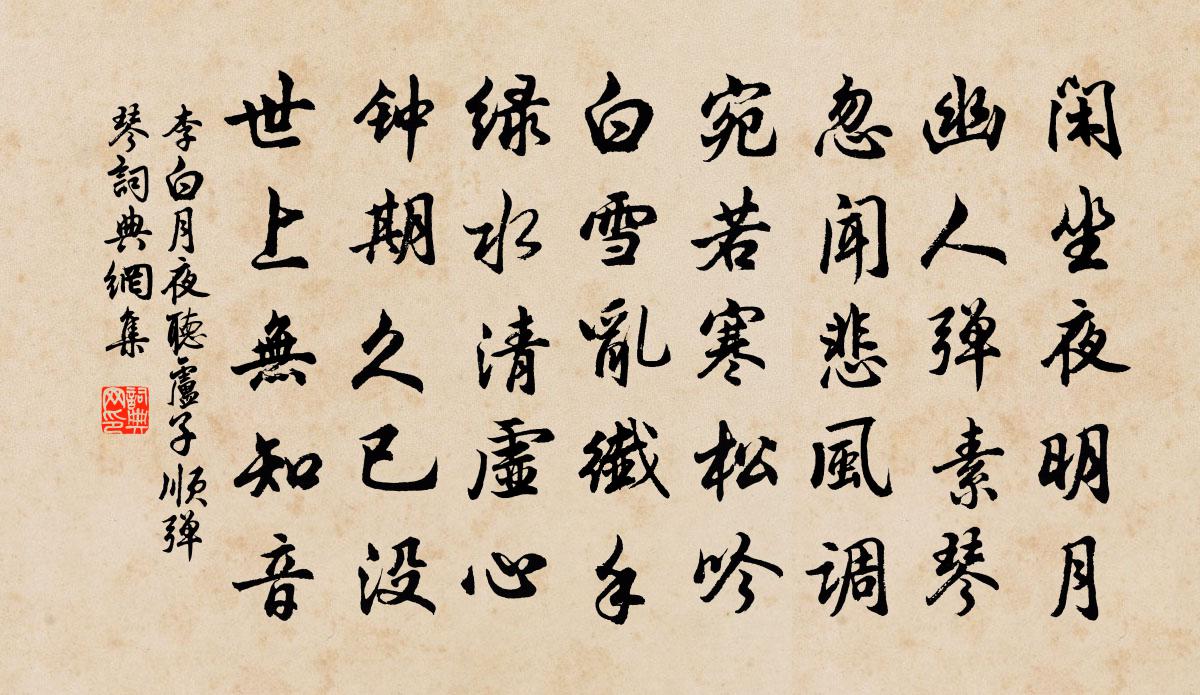 闲坐夜明月
幽人弹素琴
忽闻悲風调
宛若寒松吟
白雪亂纖手
绿水清虚心
钟期久已没
世上無知音
李白月夜聽盧子順弹
琴詞典網集
詞典
网印